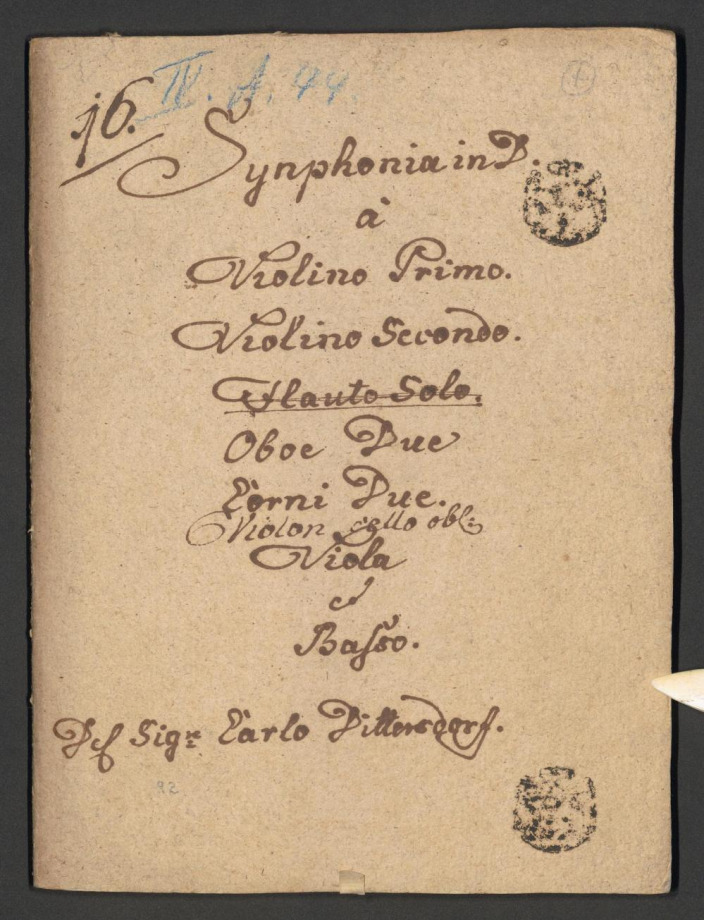 IV. A. 44.
16.
Synphonia in D.
à
Violino Primo.
Violino Secondo.
Flauto Solo.
Oboe Due
Corni Due.
Violon cello obl:
Viola
e
Basso.
Del Sigre Carlo Dittersdorf.
92